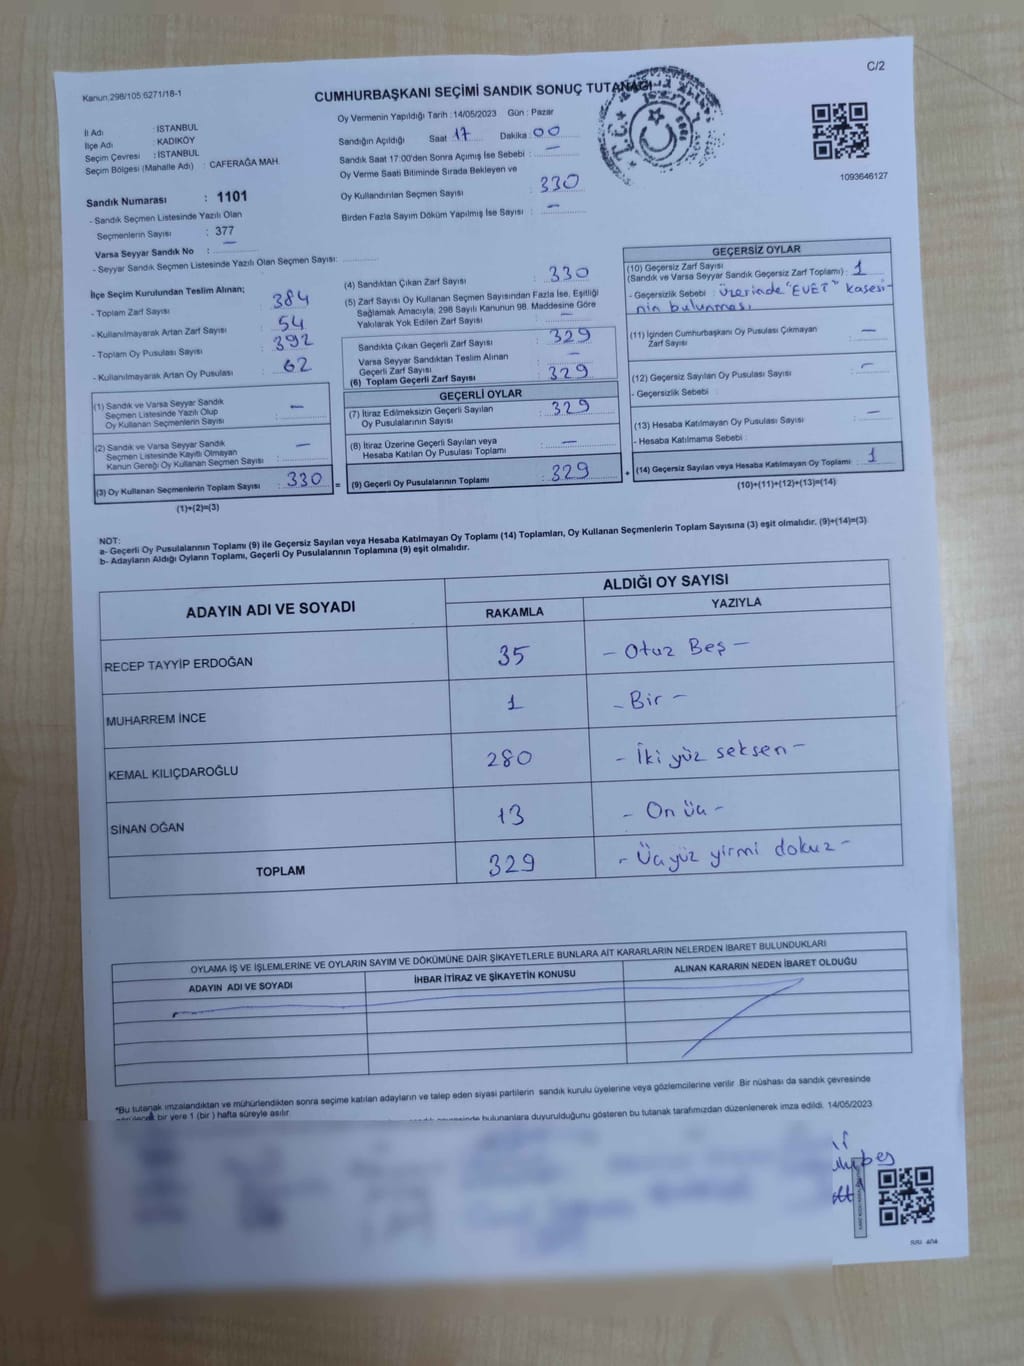 C/2
Kanun:298/105;6271/18-1
CUMHURBAŞKANI SEÇİMİ SANDIK SONUÇ TUTANAĞI
T.C.
İl Adı : İSTANBUL
İlçe Adı : KADIKÖY
Seçim Çevresi : İSTANBUL
Seçim Bölgesi (Mahalle Adı) : CAFERAĞA MAH.
Sandık Numarası : 1101
- Sandık Seçmen Listesinde Yazılı Olan
Seçmenlerin Sayısı : 377
Varsa Seyyar Sandık No : —
- Seyyar Sandık Seçmen Listesinde Yazılı Olan Seçmen Sayısı:
Oy Vermenin Yapıldığı Tarih : 14/05/2023 Gün : Pazar
Sandığın Açıldığı Saat 17 Dakika 00
Sandık Saat 17:00'den Sonra Açımış İse Sebebi : —
Oy Verme Saati Bitiminde Sırada Bekleyen ve
Oy Kullandırılan Seçmen Sayısı : 330
Birden Fazla Sayım Döküm Yapılmış İse Sayısı : —
1093646127
İlçe Seçim Kurulundan Teslim Alınan;
- Toplam Zarf Sayısı : 384
- Kullanılmayarak Artan Zarf Sayısı : 54
- Toplam Oy Pusulası Sayısı : 392
- Kullanılmayarak Artan Oy Pusulası : 62
(1) Sandık ve Varsa Seyyar Sandık
Seçmen Listesinde Yazılı Olup
Oy Kullanan Seçmenlerin Sayısı : —
(2) Sandık ve Varsa Seyyar Sandık
Seçmen Listesinde Kayıtlı Olmayan
Kanun Gereği Oy Kullanan Seçmen Sayısı : —
(3) Oy Kullanan Seçmenlerin Toplam Sayısı : 330
(1)+(2)=(3)
=
(4) Sandıktan Çıkan Zarf Sayısı : 330
(5) Zarf Sayısı Oy Kullanan Seçmen Sayısından Fazla İse, Eşitliği
Sağlamak Amacıyla, 298 Sayılı Kanunun 98. Maddesine Göre
Yakılarak Yok Edilen Zarf Sayısı : —
Sandıkta Çıkan Geçerli Zarf Sayısı : 329
Varsa Seyyar Sandıktan Teslim Alınan
Geçerli Zarf Sayısı : —
(6) Toplam Geçerli Zarf Sayısı : 329
GEÇERLİ OYLAR
(7) İtiraz Edilmeksizin Geçerli Sayılan
Oy Pusulalarının Sayısı : 329
(8) İtiraz Üzerine Geçerli Sayılan veya
Hesaba Katılan Oy Pusulası Toplamı : —
(9) Geçerli Oy Pusulalarının Toplamı : 329
+
GEÇERSİZ OYLAR
(10) Geçersiz Zarf Sayısı
(Sandık ve Varsa Seyyar Sandık Geçersiz Zarf Toplamı) : 1
- Geçersizlik Sebebi : üzerinde "EVET" kasesi-
nin bulunması.
(11) İçinden Cumhurbaşkanı Oy Pusulası Çıkmayan
Zarf Sayısı : —
(12) Geçersiz Sayılan Oy Pusulası Sayısı : —
- Geçersizlik Sebebi :
(13) Hesaba Katılmayan Oy Pusulası Sayısı : —
- Hesaba Katılmama Sebebi :
(14) Geçersiz Sayılan veya Hesaba Katılmayan Oy Toplamı : 1
(10)+(11)+(12)+(13)=(14)
NOT:
a- Geçerli Oy Pusulalarının Toplamı (9) ile Geçersiz Sayılan veya Hesaba Katılmayan Oy Toplamı (14) Toplamları, Oy Kullanan Seçmenlerin Toplam Sayısına (3) eşit olmalıdır. (9)+(14)=(3)
b- Adayların Aldığı Oyların Toplamı, Geçerli Oy Pusulalarının Toplamına (9) eşit olmalıdır.
ADAYIN ADI VE SOYADI ALDIĞI OY SAYISI
RAKAMLA YAZIYLA
RECEP TAYYİP ERDOĞAN 35 - Otuz Beş -
MUHARREM İNCE 1 - Bir -
KEMAL KILIÇDAROĞLU 280 - İki yüz seksen -
SİNAN OĞAN 13 - On üç -
TOPLAM 329 - Üç yüz yirmi dokuz -
OYLAMA İŞ VE İŞLEMLERİNE VE OYLARIN SAYIM VE DÖKÜMÜNE DAİR ŞİKAYETLERLE BUNLARA AİT KARARLARIN NELERDEN İBARET BULUNDUKLARI
ADAYIN ADI VE SOYADI İHBAR İTİRAZ VE ŞİKAYETİN KONUSU ALINAN KARARIN NEDEN İBARET OLDUĞU
*Bu tutanak imzalandıktan ve mühürlendikten sonra seçime katılan adayların ve talep eden siyasi partilerin sandık kurulu üyelerine veya gözlemcilerine verilir. Bir nüshası da sandık çevresinde
bir yere 1 (bir) hafta süreyle asılır.
bulunanlara duyurulduğunu gösteren bu tutanak tarafımızdan düzenlenerek imza edildi. 14/05/2023